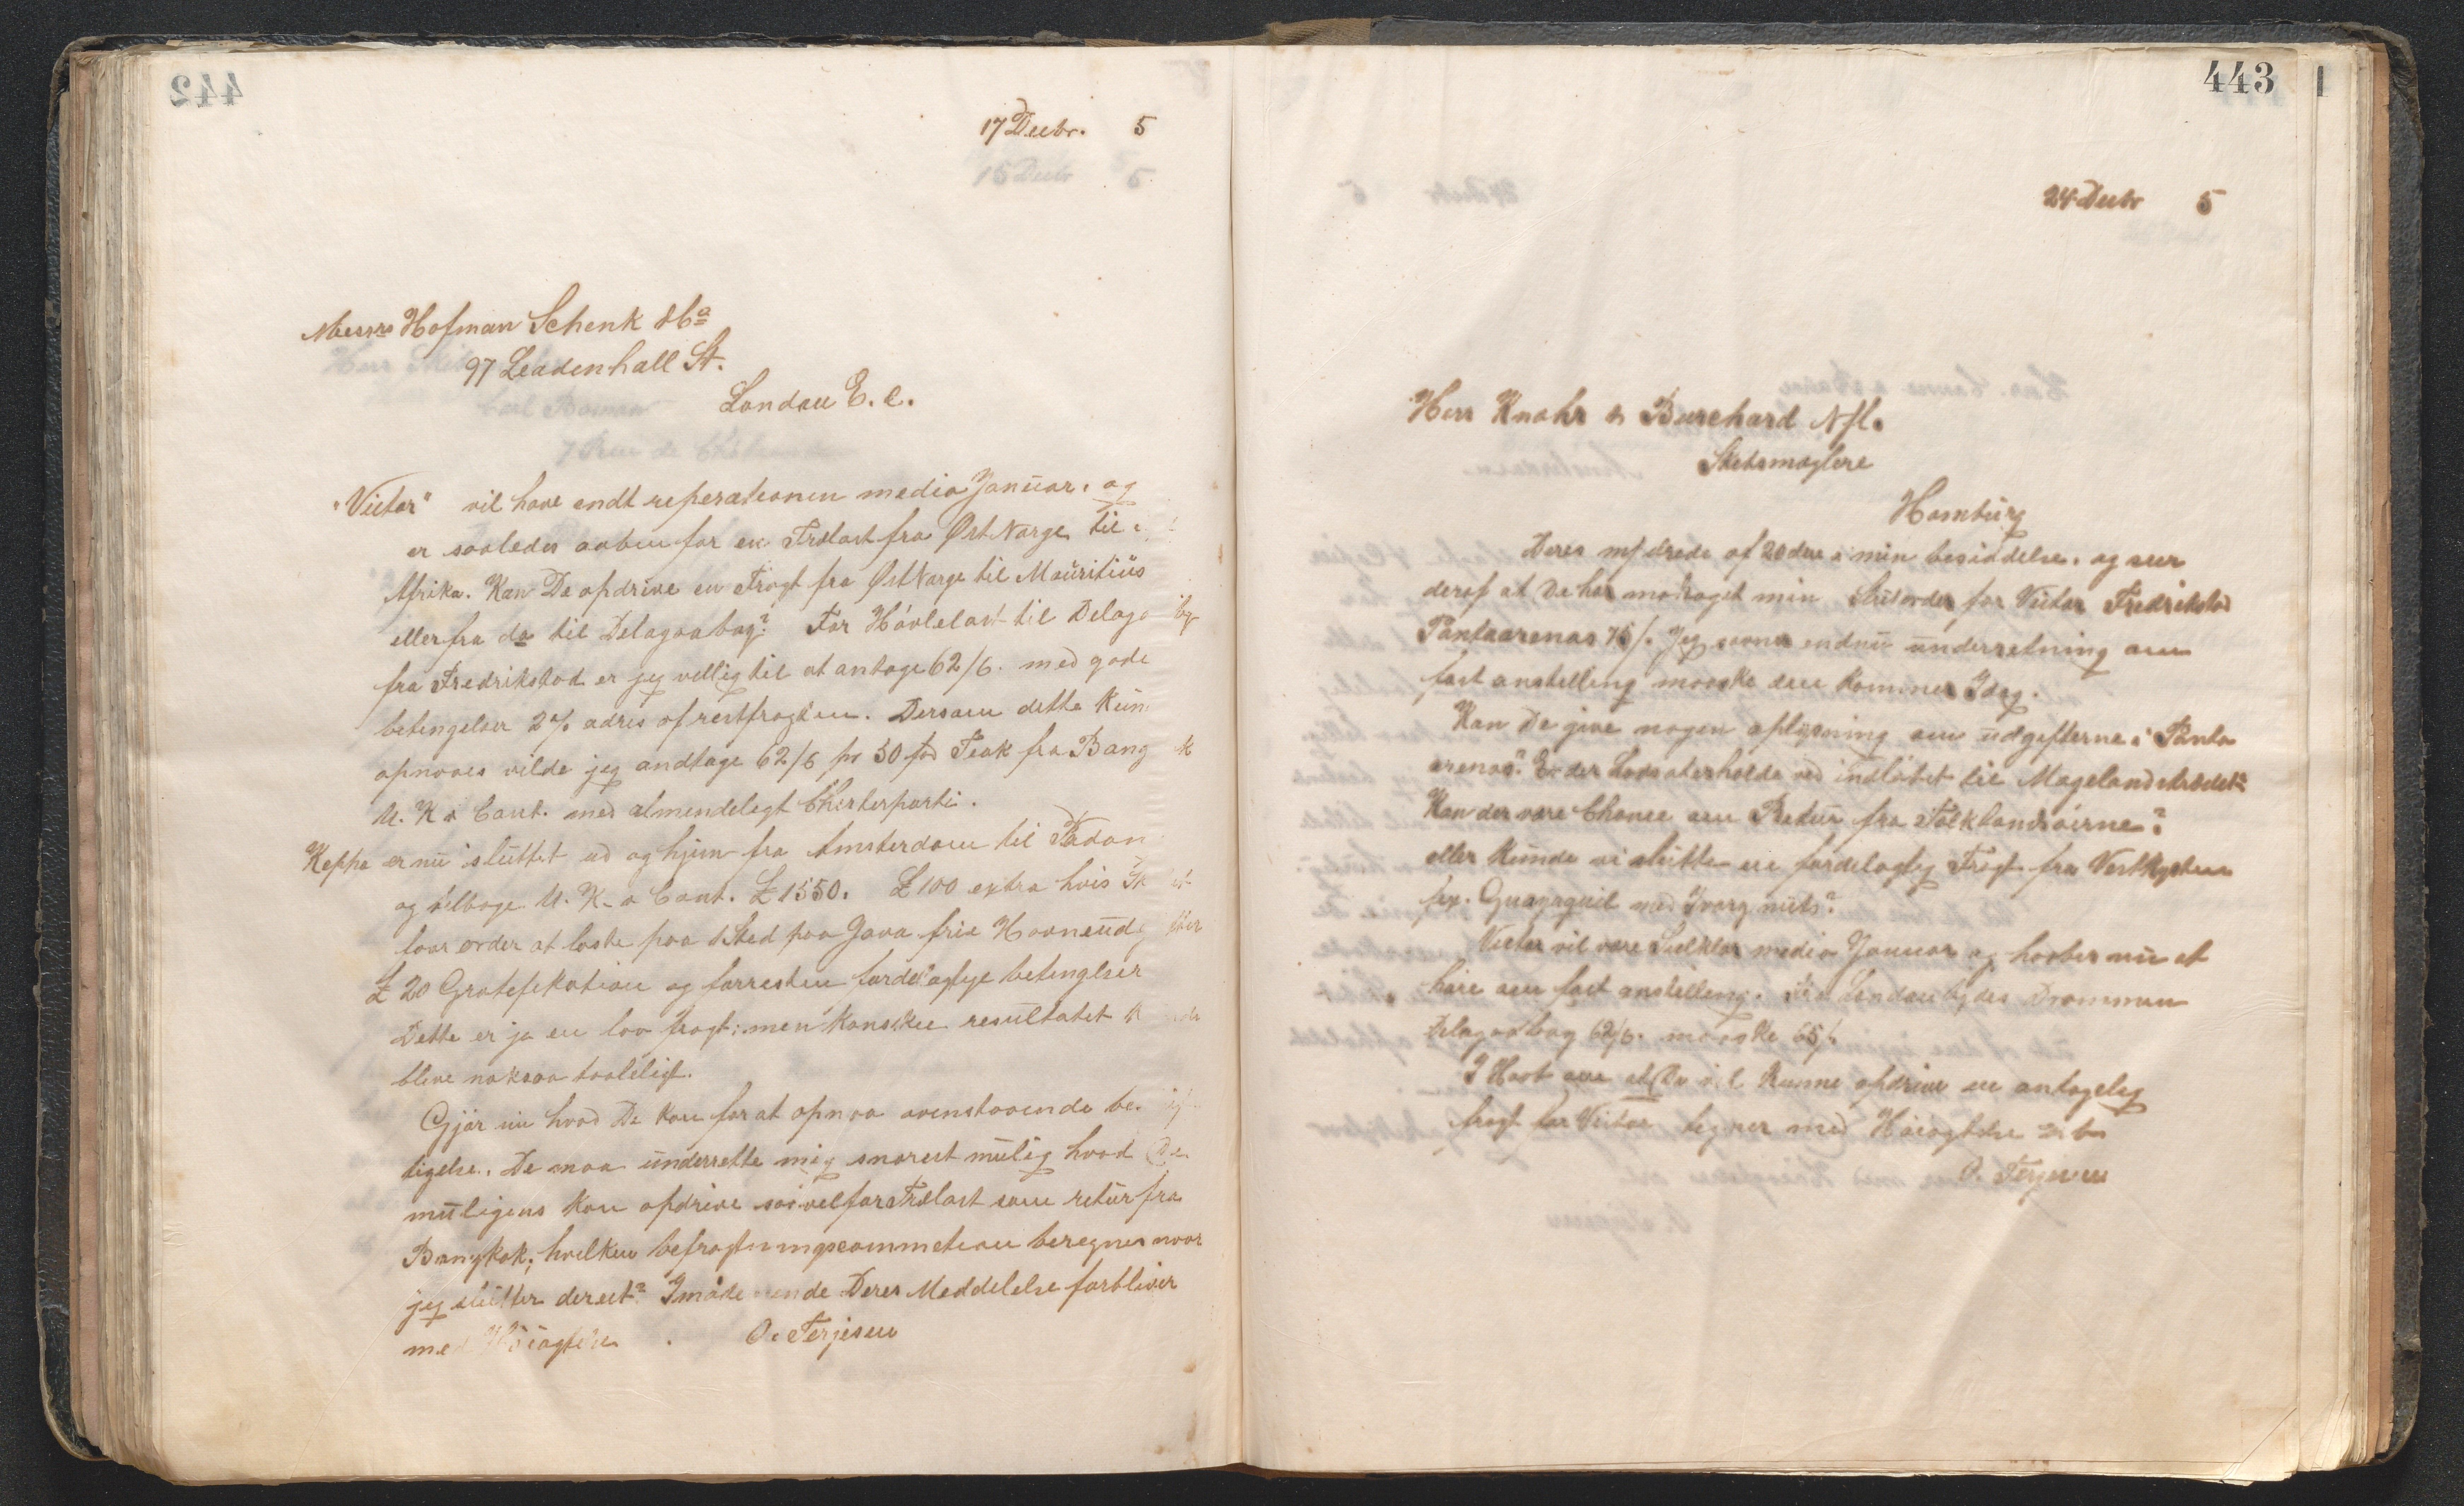 442
17 Decbr. 5
15 Decbr 5
Messrs Hofman Schenk & Co
97 Leadenhall St.
London E. C.
"Victor" vil have endt reperationen medio Januar. og
er saaledes aaben for en Trælast fra Øst Norge til
Afrika. Kan De opdrive en Fragt fra Øst Norge til Mauritius
eller fra do til Delagoabay? For Hövlelast til Delago by
fra Fredrikstad er jeg villig til at antage 62/6. med gode
betingelser 2% adres af restfragten. Dersom dette Kun
opnaaes vilde jeg andtage 62/6 pr 50 fod Teak fra Bang k
U. K. o Cont. med almendeligt Charterparti.
Keppa er nu sluttet ud og hjem fra Amsterdam til Padan
og tilbage U. K. o Cont. £ 1550. £ 100 extra hvis Sk
faar order at losse paa 1 Sted paa Java frie Havneudg fter
£ 20 Gratefikation og forresten fordelagtige betingelser
Dette er ja en lav fragt; men Kanskee resultatet K nde
blive noksaa taaleligt.
Gjör nu hvad De Kan for at opnaa ovenstaaende be
tigelse. De maa underrette mig snarest mulig hvad De
muligens Kan opdrive saavel for Trælast som retur fra
Bangkok; hvilken befragtningscommetion beregnes naar
jeg slutter derect? Imöde ende Deres Meddelelse forbliver
med Höiagtelse O. Terjesen
443
24 Decbr 5
Herr Knohr & Burchard Nfl.
Skibsmæglere
Hamburg
Deres m/ ærede af 20 dns i min besiddelse. og seer
deraf at De har modtaget min Slutorder for Victor Fredrikstad
Puntaarenas 75/. Jeg savner endnu underretning om
fast anstelling maaske den Kommer Idag.
Kan De give nogen oplysning om udgifterne i Punta
arenas? Er der Lods at erholde ved indløbet til Magelandstrædet?
Kan der være Chance om Retur fra Falklandsöerne?
eller Kunde vi slutte en fordelagtig Fragt fra Vestkysten
fex. Guayaquil med Ivory nuts?
Victor vil være Seilklar medio Januar og haaber nu at
höre om fast anstelling. Fra London bydes Drammen
Delagoabay 62/6. maaske 65/.
I Haab om at De vil Kunne opdrive en antagelig
fragt for Victor tegner med Höiagtelse
O. Terjesen